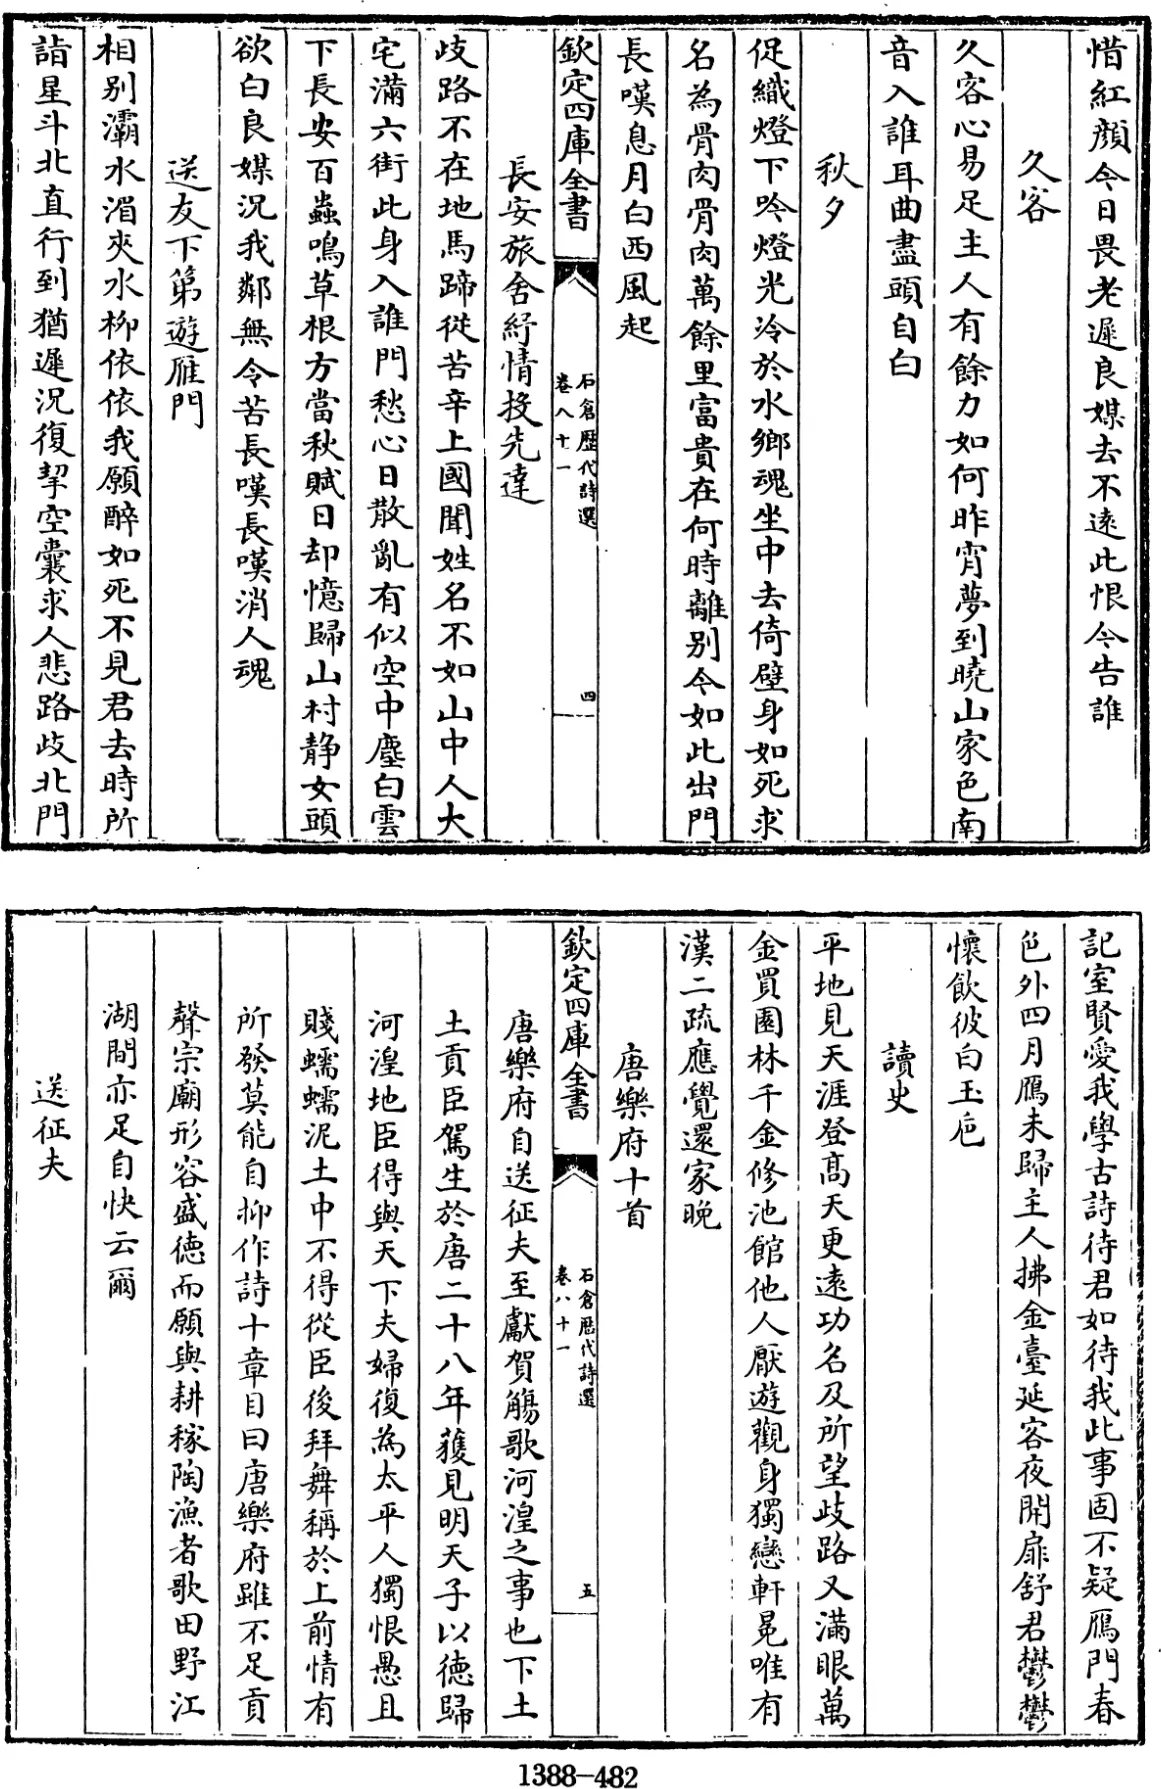 惜紅顔今日畏老遲良媒去不遠此恨今告誰
久客
久客心易足主人有餘力如何昨宵夢到曉山家色南
音入誰耳曲盡頭自白
秋夕
促織燈下吟燈光冷於水鄉魂坐中去倚壁身如死求
名為骨肉骨肉萬餘里富貴在何時離别今如此出門
長嘆息月白西風起
欽定四庫全書
石倉歴代詩選
卷八十一
四
長安旅舍紓情投先達
歧路不在地馬蹄徒苦辛上國聞姓名不如山中人大
宅滿六街此身入誰門愁心日散亂有似空中塵白雲
下長安百蟲鳴草根方當秋賦日却憶歸山村静女頭
欲白良媒況我鄰無令苦長嘆長嘆消人魂
送友下第遊雁門
相别灞水湄夾水柳依依我願醉如死不見君去時所
詣星斗北直行到猶遲況復挈空囊求人悲路歧北門
記室賢愛我學古詩待君如待我此事固不疑鴈門春
色外四月鴈未歸主人拂金臺延客夜開扉舒君鬱鬱
懷飲彼白玉巵
讀史
平地見天涯登高天更遠功名及所望歧路又滿眼萬
金買園林千金修池館他人厭遊觀身獨戀軒冕唯有
漢二疏應覺還家晚
唐樂府十首
欽定四庫全書
石倉歴代詩選
卷八十一
五
唐樂府自送征夫至獻賀觴歌河湟之事也下土
土貢臣駕生於唐二十八年獲見明天子以德歸
河湟地臣得與天下夫婦復為太平人獨恨愚且
賤蠕蠕泥土中不得從臣後拜舞稱於上前情有
所發莫能自抑作詩十章目曰唐樂府雖不足貢
聲宗廟形容盛德而願與耕稼陶漁者歌田野江
湖間亦足自快云爾
送征夫
1388-482